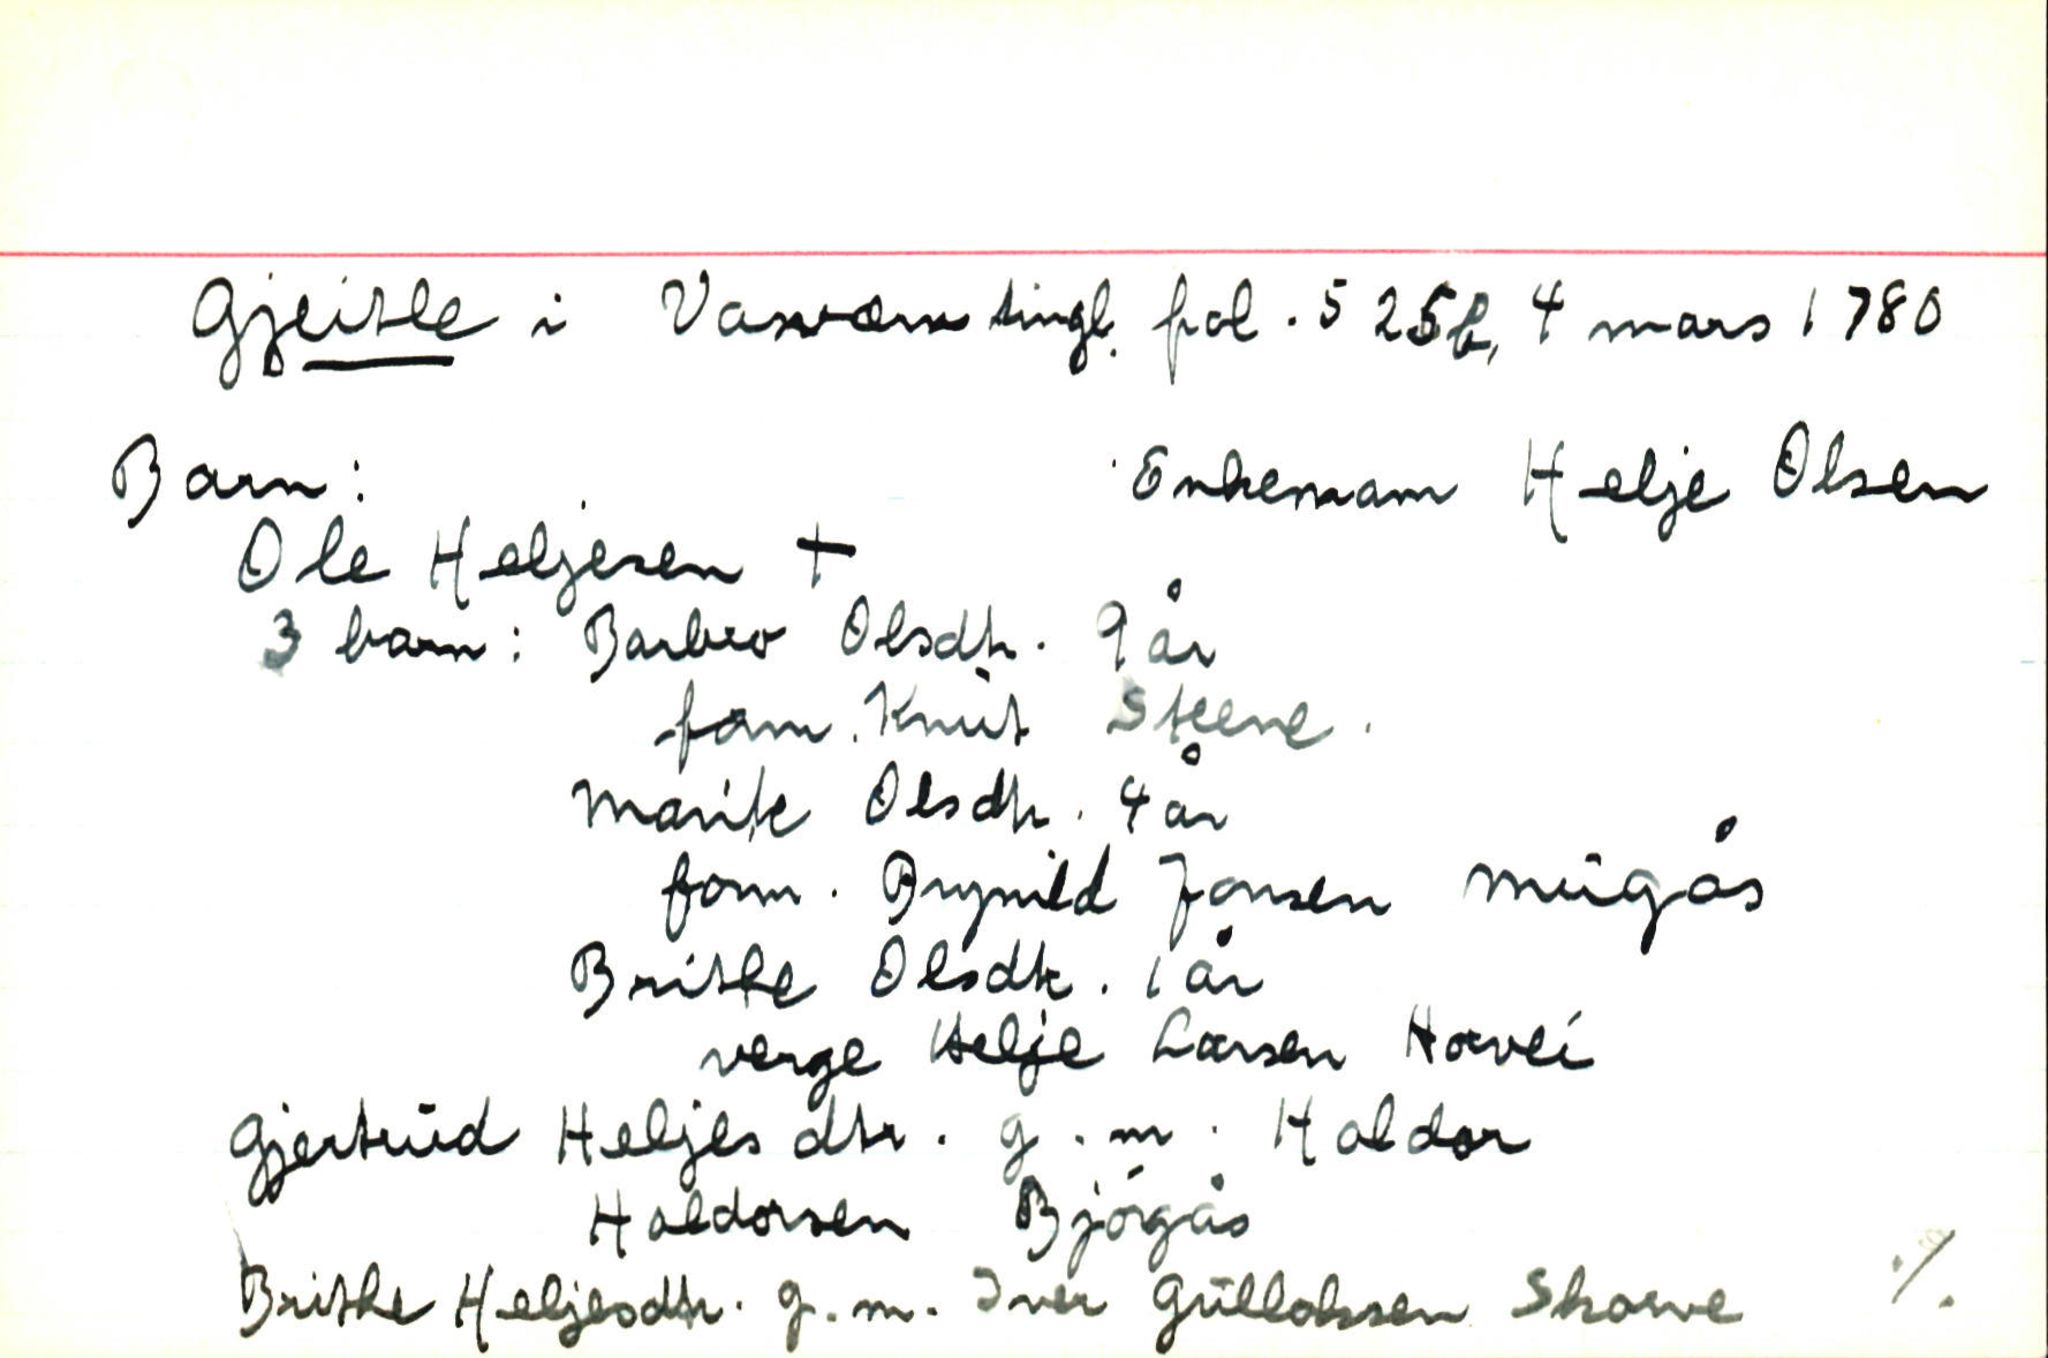 Gjeitle i Vasværn tingl. fol. 525b, 4 mars 1780
Barn: Enkemann Helje Olsen
Ole Heljesen +
3 barn: Barbro Olsdtr. 9 år
form. Knut Steene.
Marite Olsdtr. 4 år
form. Brynild Jonsen Mugås
Brithe Olsdtr. 1 år
verge Helje Larsen Horvei
Gjertrud Heljesdtr. g.m. Haldor
Haldorsen Bjørgås
Brithe Heljesdtr. g.m. Iver Gulleksen Skorve ./.